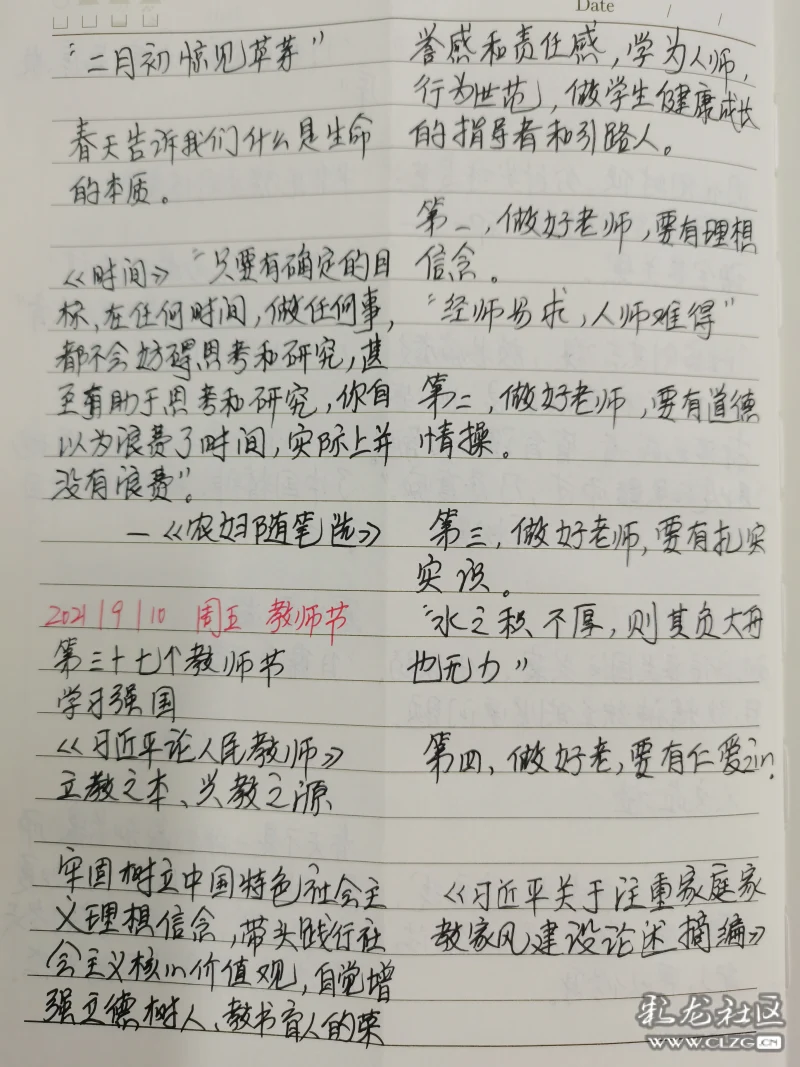 Date
"二月初惊见草芽"
春天告诉我们什么是生命
的本质。
《时间》"只要有确定的目
标,在任何时间,做任何事,
都不会妨碍思考和研究,甚
至有助于思考和研究,你自
以为浪费了时间,实际上并
没有浪费"。
—《农妇随笔选》
2021/9/10 周五 教师节
第三十七个教师节
学习强国
《习近平论人民教师》
立教之本、兴教之源
牢固树立中国特色社会主
义理想信念,带头践行社
会主义核心价值观,自觉增
强立德树人、教书育人的荣
誉感和责任感,学为人师,
行为世范,做学生健康成长
的指导者和引路人。
第一,做好老师,要有理想
信念。
"经师易求,人师难得"
第二,做好老师,要有道德
情操。
第三,做好老师,要有扎实
实识。
"水之积不厚,则其负大舟
也无力"
第四、做好老,要有仁爱zin.
《习近平关于注重家庭家
教家风建设论述摘编》
乳龙社区
WWW.CLZG.CN